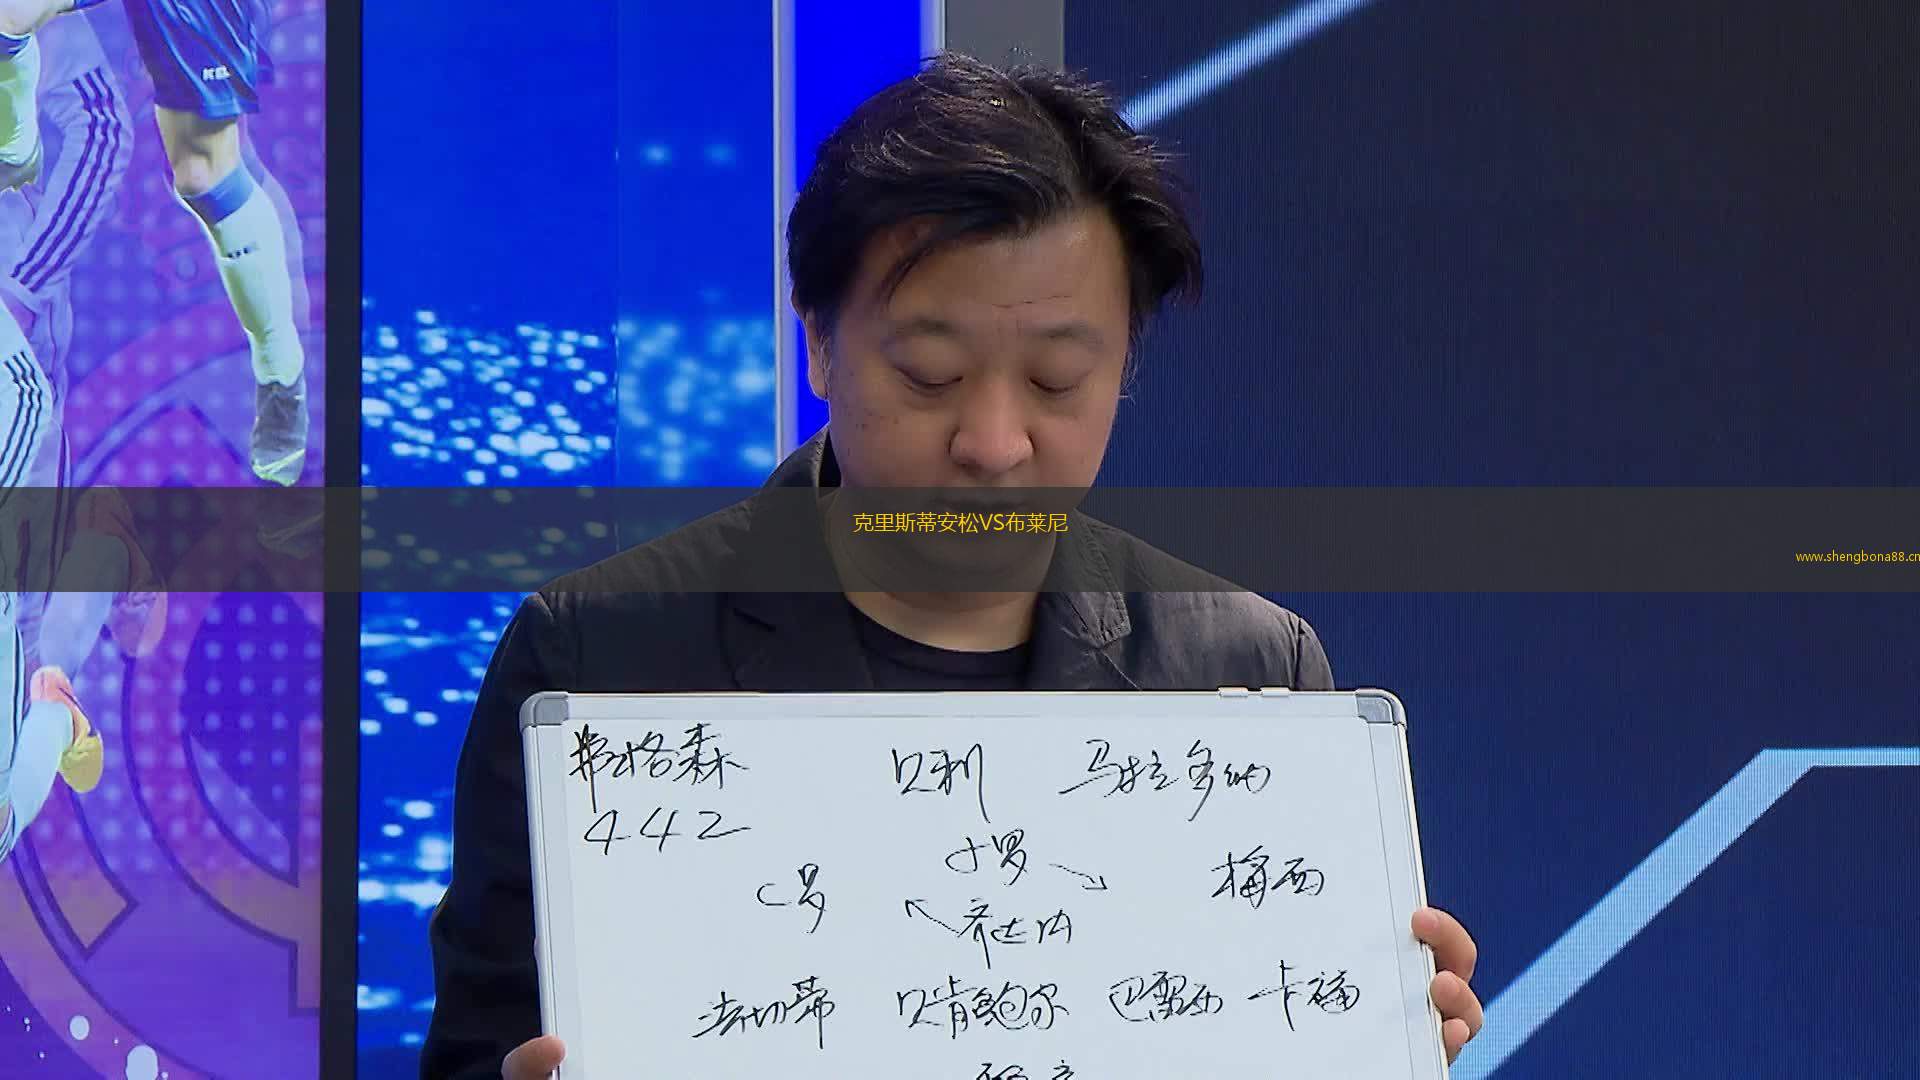 克里斯蒂安松VS布莱尼
www.shengbona88.cn
弗格森 贝利 马拉多纳
442
小罗
C罗 梅西
齐达内
法切蒂 贝肯鲍尔 巴雷西 卡福